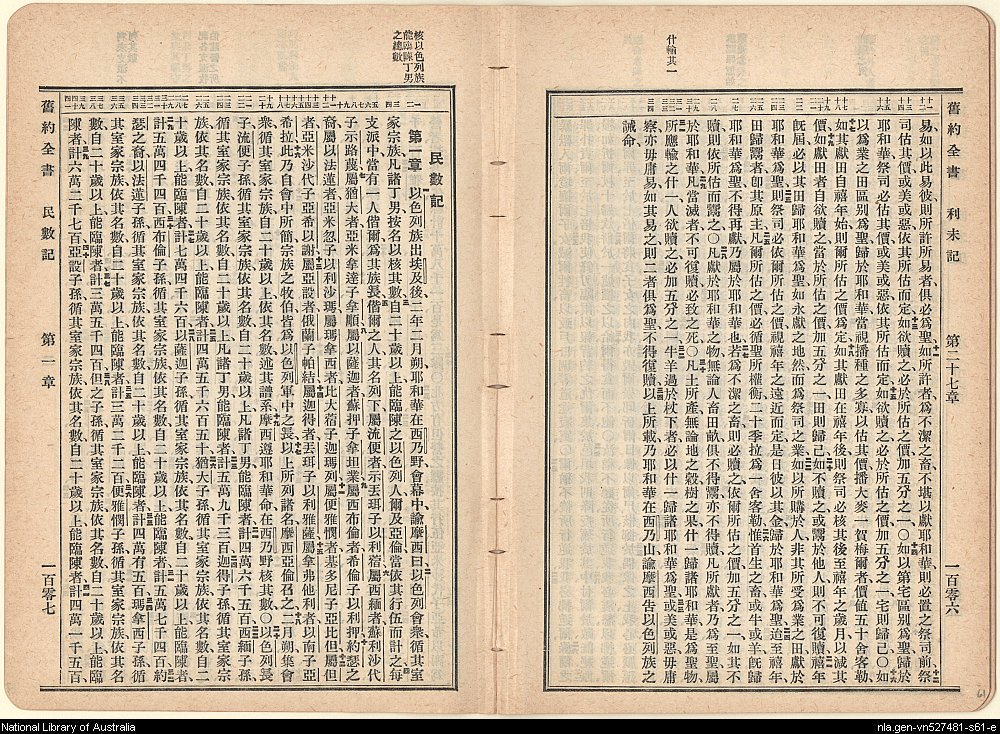 舊約全書 利未記 第二十七章 一百零六
易如以此易彼則所許所易者俱必爲聖如所許者爲不潔之畜不堪以獻耶和華則必置之祭司前祭
司估其價或美或惡依其所估而定如欲贖之必於所估之價加五分之一〇如以第宅區别爲聖歸於
耶和華祭司必估其價或美或惡依其所估而定如欲贖之必於所估之價加五分之一宅則歸己〇如
以爲業之田區别爲聖歸於耶和華當視播種之多寡以估其價播大麥一賀梅爾者價値五十舍客勒
如其獻田自禧年始則爾所估之價爲定如其獻田在禧年後則祭司必核其後至禧年之歲月以減其
價如獻田者自欲贖之當於所估之價加五分之一田則歸己如不贖之或鬻於他人則不可復贖禧年
既屆必以其田歸耶和華爲聖如永獻之地然而爲祭司之業如以所購於人非其所受爲業之田獻於
耶和華爲聖則祭司必依爾所估之價視禧年之遠近而定是日彼以其金歸於耶和華爲聖迨至禧年
田歸鬻者卽其原主凡爾所估之價必循聖所權衡二十季拉爲一舍客勒惟首生之畜或牛或羊既歸
耶和華爲聖不得再獻乃屬於耶和華也若爲不潔之畜則必贖之依爾所估之價加五分之一如其不
贖則依所估而鬻之〇凡獻於耶和華之物無論人畜田畝俱不得鬻亦不得贖凡所獻者乃爲至聖屬
於耶和華凡當滅者不可復贖必致之死〇凡土所產無論地之穀樹之果什一歸諸耶和華是爲聖物
什輸其一
所應輸之什一人欲贖之必加五分之一牛羊過於杖下者必以什一歸諸耶和華爲聖或美或惡毋庸
察亦毋庸易如其易之則二者俱爲聖不得復贖以上所載乃耶和華在西乃山諭摩西告以色列族之
誡命
61
民數記
核以色列族能臨陳丁男之總數
第一章 以色列族出埃及後二年二月朔耶和華在西乃野會幕中諭摩西曰以色列會衆循其室
家宗族凡諸丁男按名以核其數自二十歲以上能臨陳之以色列人爾及亞倫當依其行伍而計之每
支派中當有一人偕爾爲其族長偕爾之人其名列下屬流便者示丟珥子以利蓿屬西緬者蘇利沙代
子示路蔑屬猶大者亞米拿達子拿順屬以薩迦者蘇押子拿坦業屬西布倫者希倫子以利押約瑟之
裔屬以法蓮者亞米忽子以利沙瑪屬瑪拿西者比大蓿子迦瑪列屬便雅憫者基多尼子亞比但屬但
者亞米沙代子亞希以謝屬亞設者俄蘭子帕結屬迦得者丟珥子以利雅薩屬拿弗他利者以南子亞
希拉此乃自會中所簡宗族之牧伯皆爲以色列軍中之長以上所列諸名摩西亞倫召之二月朔集會
衆循其室家宗族自二十歲以上依其名數述其譜系摩西遵耶和華命在西乃野核其數〇以色列長
子流便子孫循其室家宗族依其名數自二十歲以上凡諸丁男能臨陳者計四萬六千五百西緬子孫
循其室家宗族依其名數自二十歲以上凡諸丁男能臨陳者計五萬九千三百迦得子孫循其室家宗
族依其名數自二十歲以上能臨陳者計四萬五千六百五十猶大子孫循其室家宗族依其名數自二
十歲以上能臨陳者計七萬四千六百以薩迦子孫循其室家宗族依其名數自二十歲以上能臨陳者
計五萬四千四百西布倫子孫循其室家宗族依其名數自二十歲以上能臨陳者計五萬七千四百約
瑟之裔以法蓮子孫循其室家宗族依其名數自二十歲以上能臨陳者計四萬有五百瑪拿西子孫循
其室家宗族依其名數自二十歲以上能臨陳者計三萬二千二百便雅憫子孫循其室家宗族依其名
數自二十歲以上能臨陳者計三萬五千四百但之子孫循其室家宗族依其名數自二十歲以上能臨
陳者計六萬二千七百亞設子孫循其室家宗族依其名數自二十歲以上能臨陳者計四萬一千五百
舊約全書 民數記 第一章 一百零七
National Library of Australia
nla.gen-vn527481-s61-e